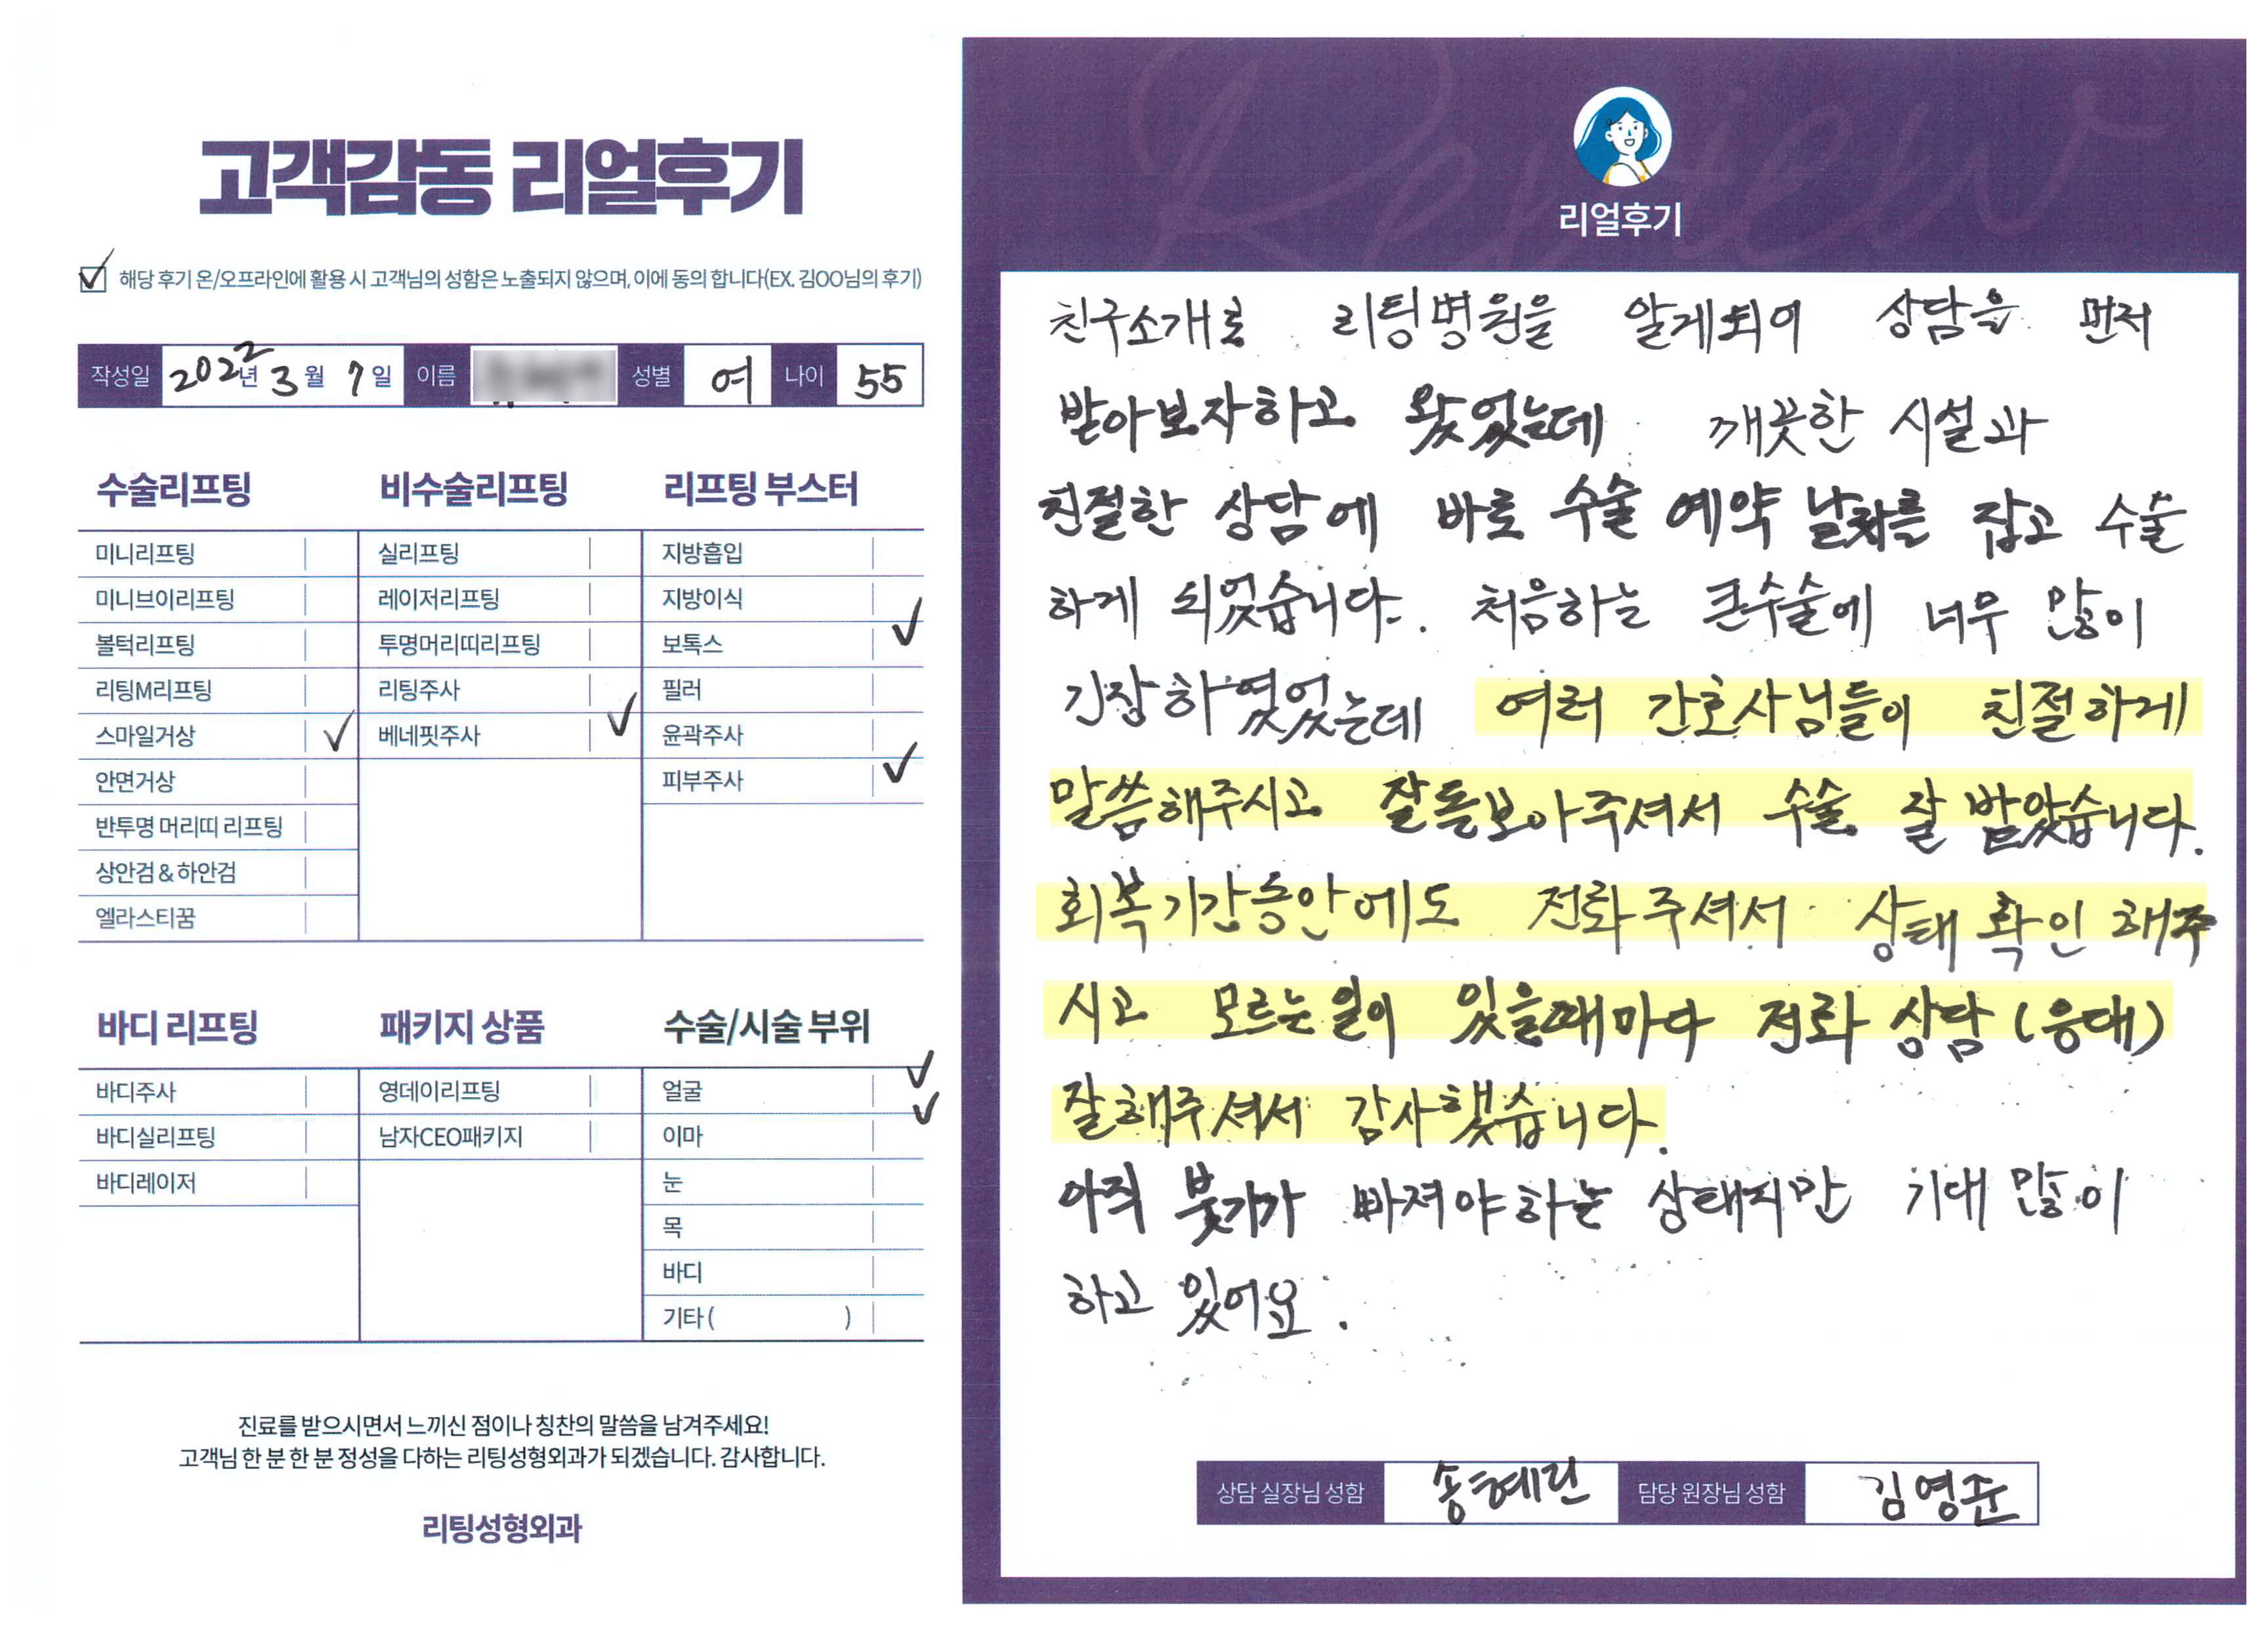 고객감동 리얼후기
해당 후기 온/오프라인에 활용 시 고객님의 성함은 노출되지 않으며, 이에 동의 합니다(EX. 김OO님의 후기)
작성일 2022년 3월 7일 이름 성별 여 나이 55
수술리프팅
미니리프팅
미니브이리프팅
볼턱리프팅
리팅M리프팅
스마일거상
안면거상
반투명 머리띠 리프팅
상안검 & 하안검
엘라스티꿈
비수술리프팅
실리프팅
레이저리프팅
투명머리띠리프팅
리팅주사
베네핏주사
리프팅 부스터
지방흡입
지방이식
보톡스
필러
윤곽주사
피부주사
바디 리프팅
바디주사
바디실리프팅
바디레이저
패키지 상품
영데이리프팅
남자CEO패키지
수술/시술 부위
얼굴
이마
눈
목
바디
기타 ( )
진료를 받으시면서 느끼신 점이나 칭찬의 말씀을 남겨주세요!
고객님 한 분 한 분 정성을 다하는 리팅성형외과가 되겠습니다. 감사합니다.
리팅성형외과
Review
리얼후기
친구소개로 리팅병원을 알게되어 상담을 먼저
받아보자하고 왔었는데 깨끗한 시설과
친절한 상담에 바로 수술 예약 날짜를 잡고 수술
하게 되었습니다. 처음하는 큰수술에 너무 많이
긴장하였었는데 여러 간호사님들이 친절하게
말씀해주시고 잘돌보아주셔서 수술 잘 받았습니다.
회복기간동안에도 전화주셔서 상태 확인 해주
시고 모르는일이 있을때마다 전화 상담(응대)
잘해주셔서 감사했습니다.
아직 붓기가 빠져야하는 상태지만 기대 많이
하고 있어요.
상담 실장님 성함 송혜린 담당 원장님 성함 김영준